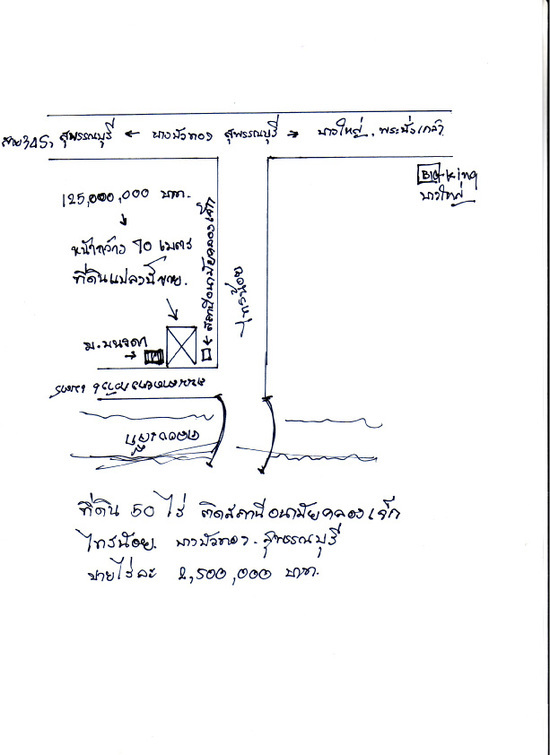 สาย 345, สุพรรณบุรี ← บางบัวทอง สุพรรณบุรี → บางใหญ่. พระนั่งเกล้า
BIG-king
บางใหญ่
125,000,000 บาท.
↓
หน้ากว้าง 70 เมตร
ที่ดินแปลงนี้ขาย.
สถานีอนามัยคลองเจ๊ก
ไทรน้อย
ม.บนจดา
ที่ดิน 50 ไร่ ติดสถานีอนามัยคลองเจ๊ก
ไทรน้อย. บางบัวทอง. สุพรรณบุรี
ขายไร่ละ 2,500,000 บาท.